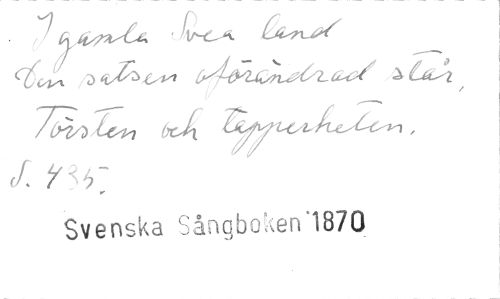 I gamla Svea land
Den satsen oförändrad står,
Törsten och tapperheten.
S. 435.
Svenska Sångboken 1870